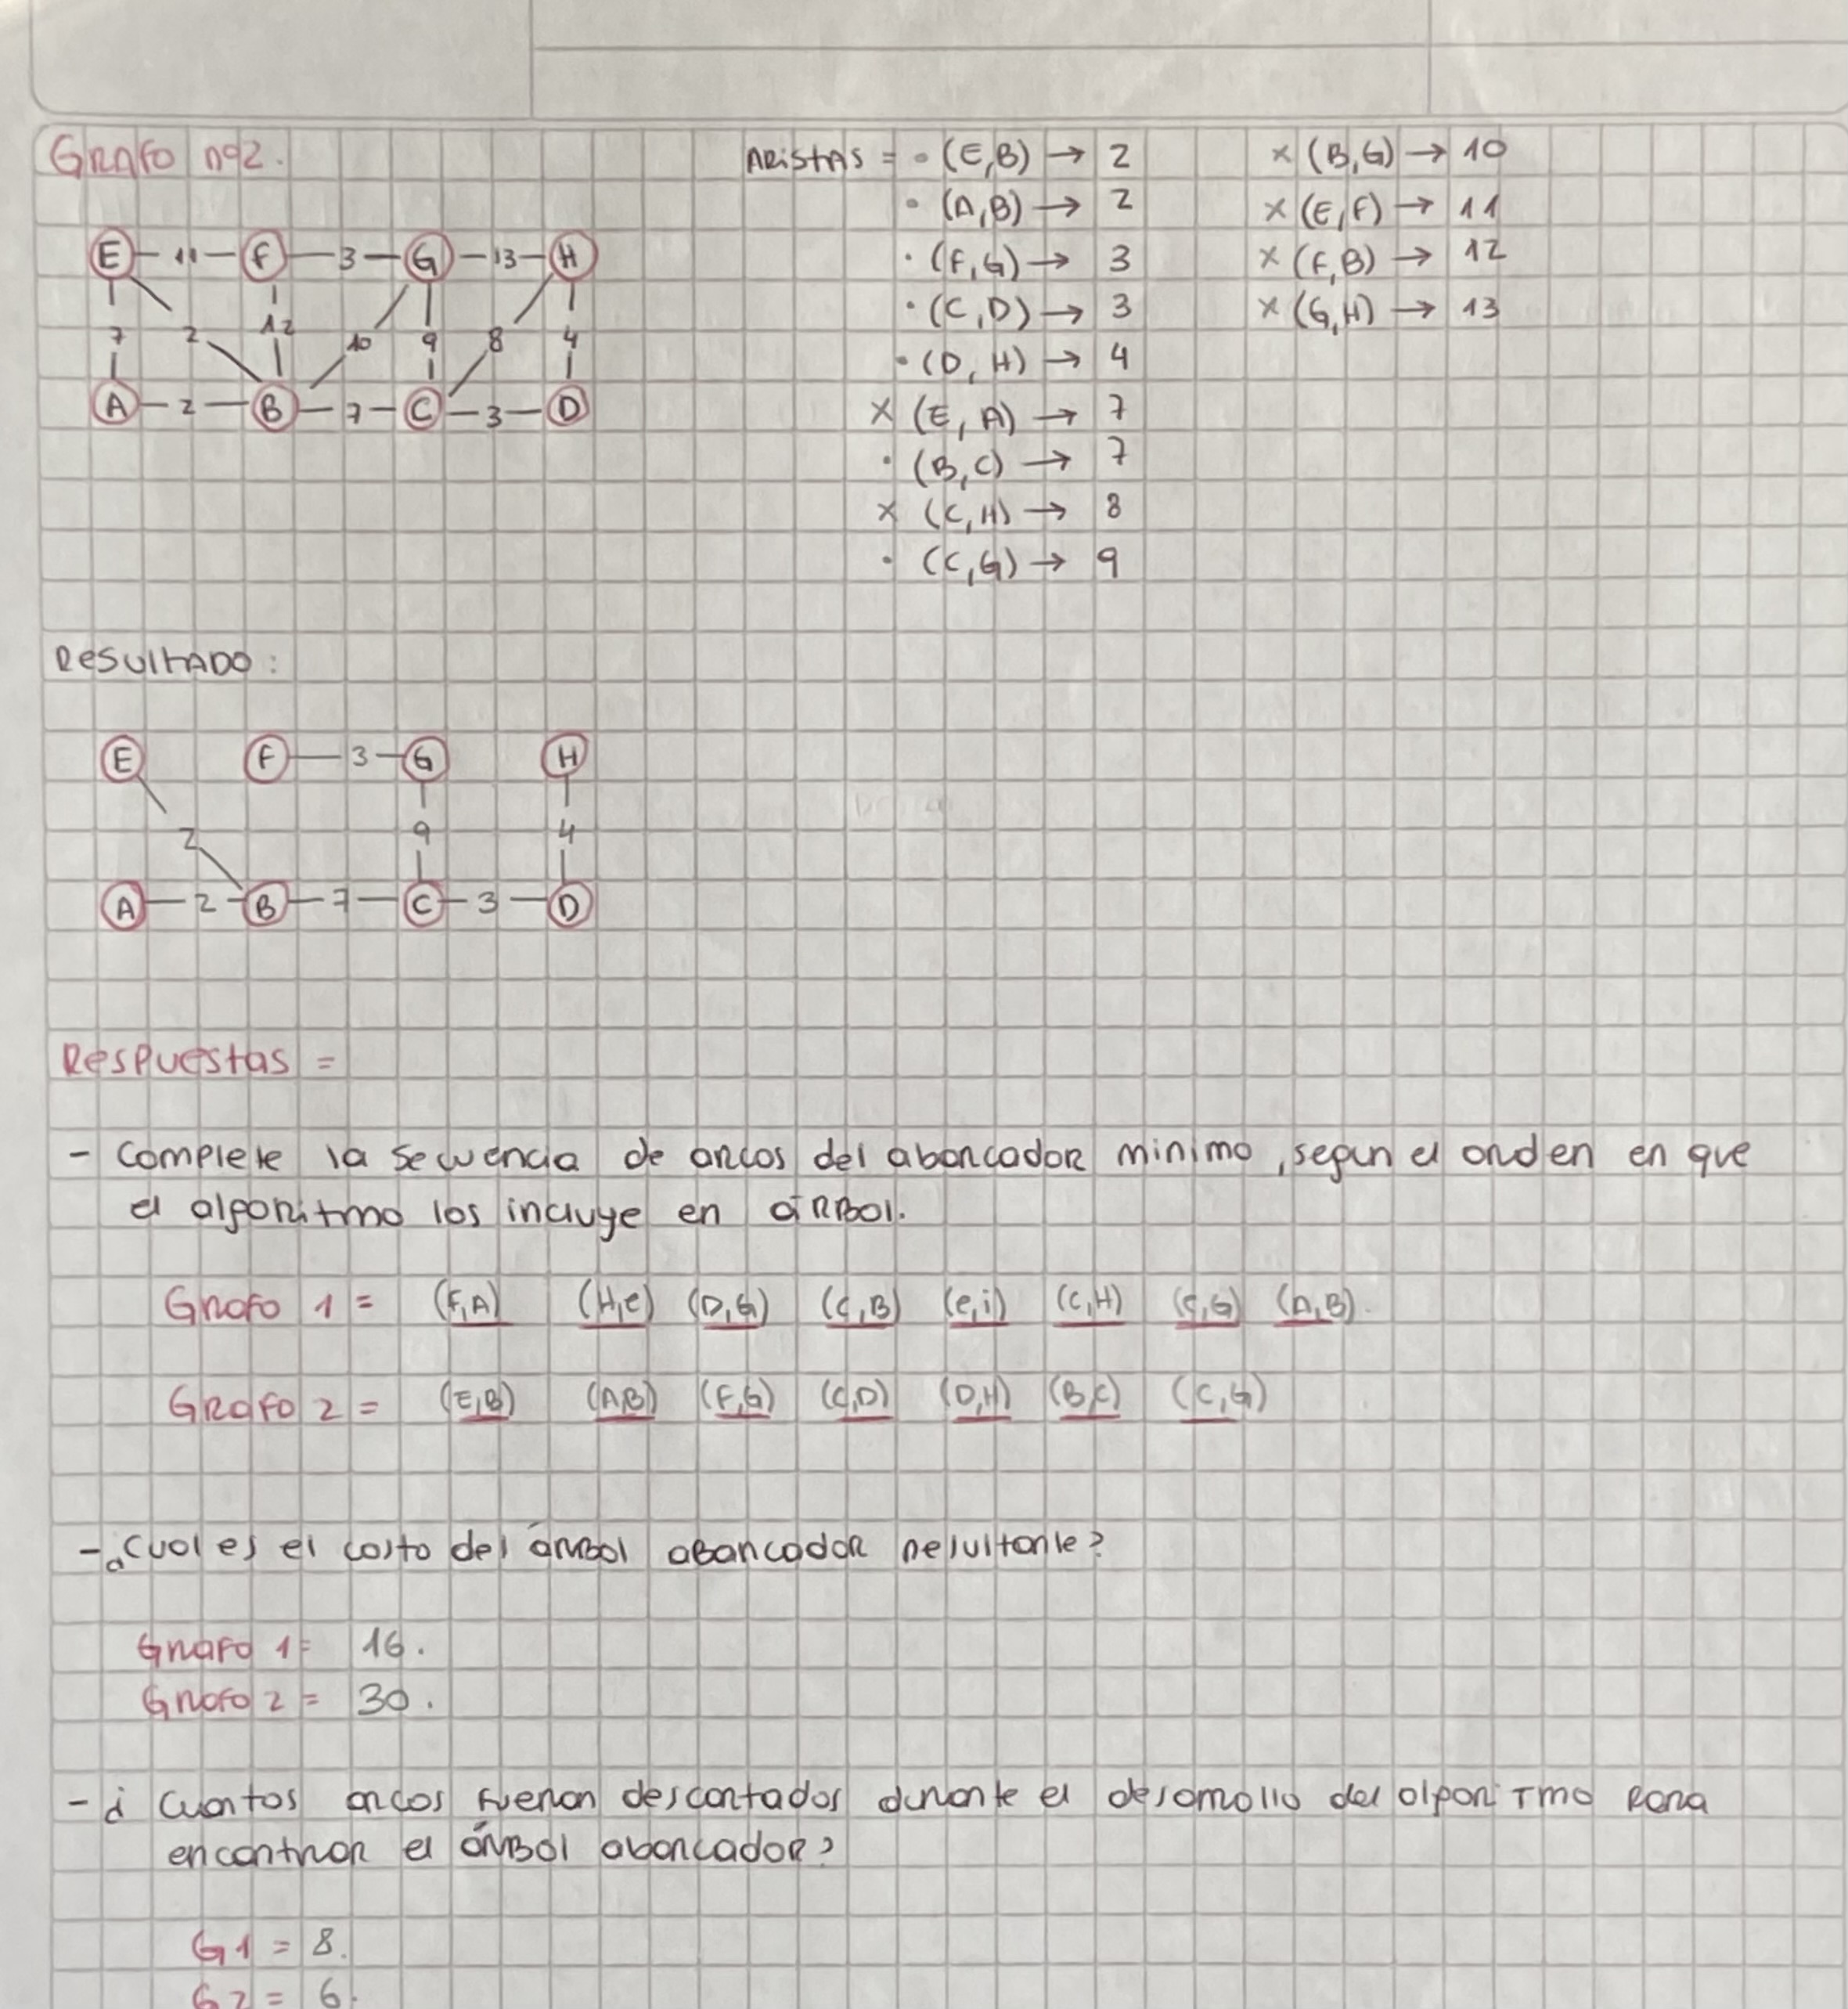 Grafo nº2.
ARiStAS = • (E,B) → 2
• (A,B) → 2
• (F,G) → 3
• (C,D) → 3
• (D,H) → 4
× (E,A) → 7
• (B,C) → 7
× (C,H) → 8
• (C,G) → 9
× (B,G) → 10
× (E,F) → 11
× (F,B) → 12
× (G,H) → 13
E — 11 — F — 3 — G — 13 — H
7 2 12 10 9 8 4
A — 2 — B — 7 — C — 3 — D
ResultADO:
E F — 3 — G H
2 9 4
A — 2 — B — 7 — C — 3 — D
Respuestas =
- Complete la secuencia de arcos del abarcador minimo, segun el orden en que
el algoritmo los incluye en árbol.
Grafo 1 = (F,A) (H,e) (D,G) (C,B) (e,i) (C,H) (C,G) (A,B).
Grafo 2 = (E,B) (A,B) (F,G) (C,D) (D,H) (B,C) (C,G)
- ¿Cual es el costo del árbol abarcador resultante?
Grafo 1 = 16.
Grafo 2 = 30.
- ¿ Cuantos arcos fueron descartados durante el desarrollo del algoritmo para
encontrar el árbol abarcador?
G1 = 8.
G2 = 6.